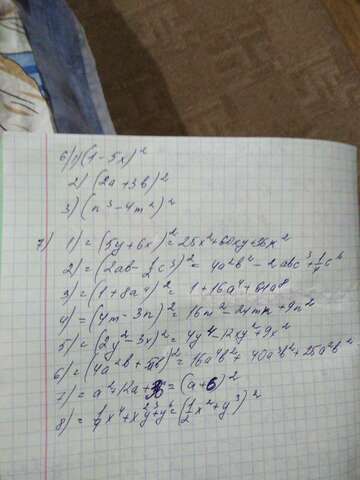 6) 1) (1-5x)²
2) (2a+3b)²
3) (n³-4m²)²
7) 1) = (5y+6x)² = 25x²+60xy+36x²
2) = (2ab-½c³)² = 4a²b²-2abc³+¼c⁶
3) = (1+8a⁴)² = 1+16a⁴+64a⁸
4) = (4m-3n)² = 16m²-24mn+9n²
5) = (2y²-3x)² = 4y⁴-12xy²+9x²
6) = (4a²b+5ab)² = 16a⁴b²+40a³b²+25a²b²
7) = a²+12a+36 = (a+6)²
8) = ¼x⁴+x²y³+y⁶ = (½x²+y³)²